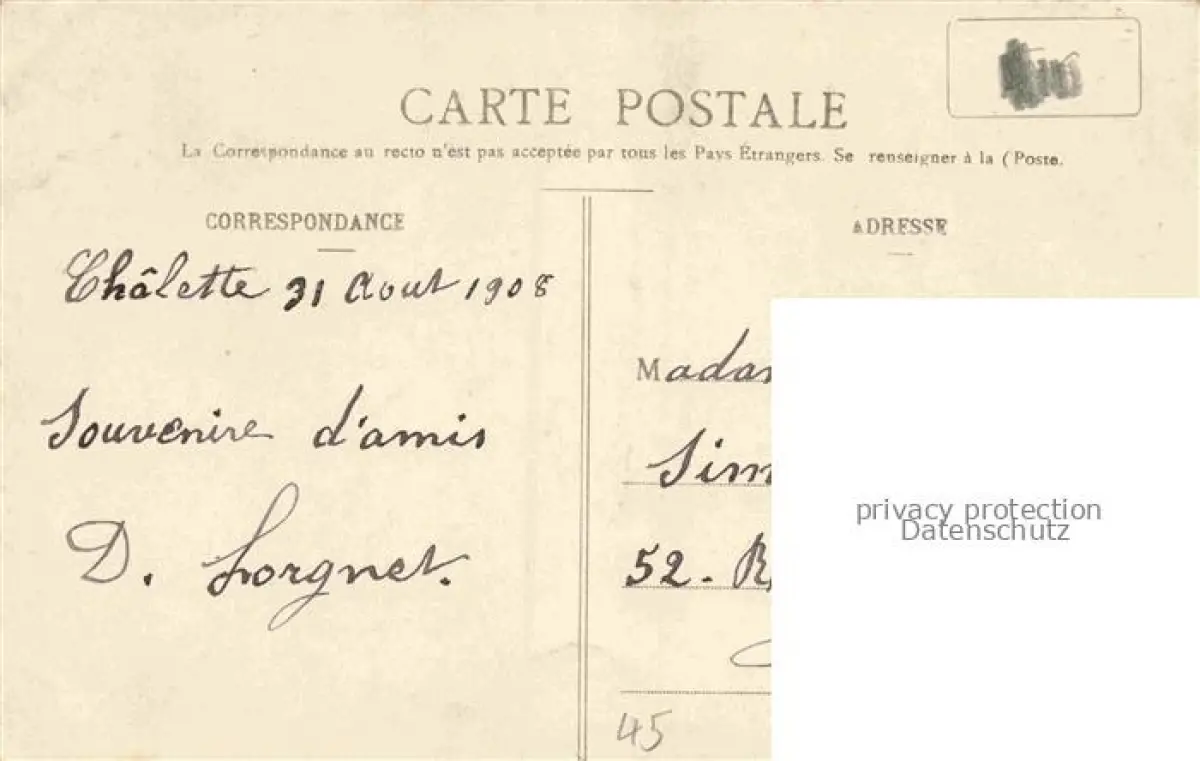 CARTE POSTALE
La Correspondance au recto n'est pas acceptée par tous les Pays Étrangers. Se renseigner à la (Poste.
CORRESPONDANCE
Châlette 31 Aout 1908
Souvenire d'amis
D. Lorgnet.
ADRESSE
Madam
Sim
52. R
privacy protection
Datenschutz
45